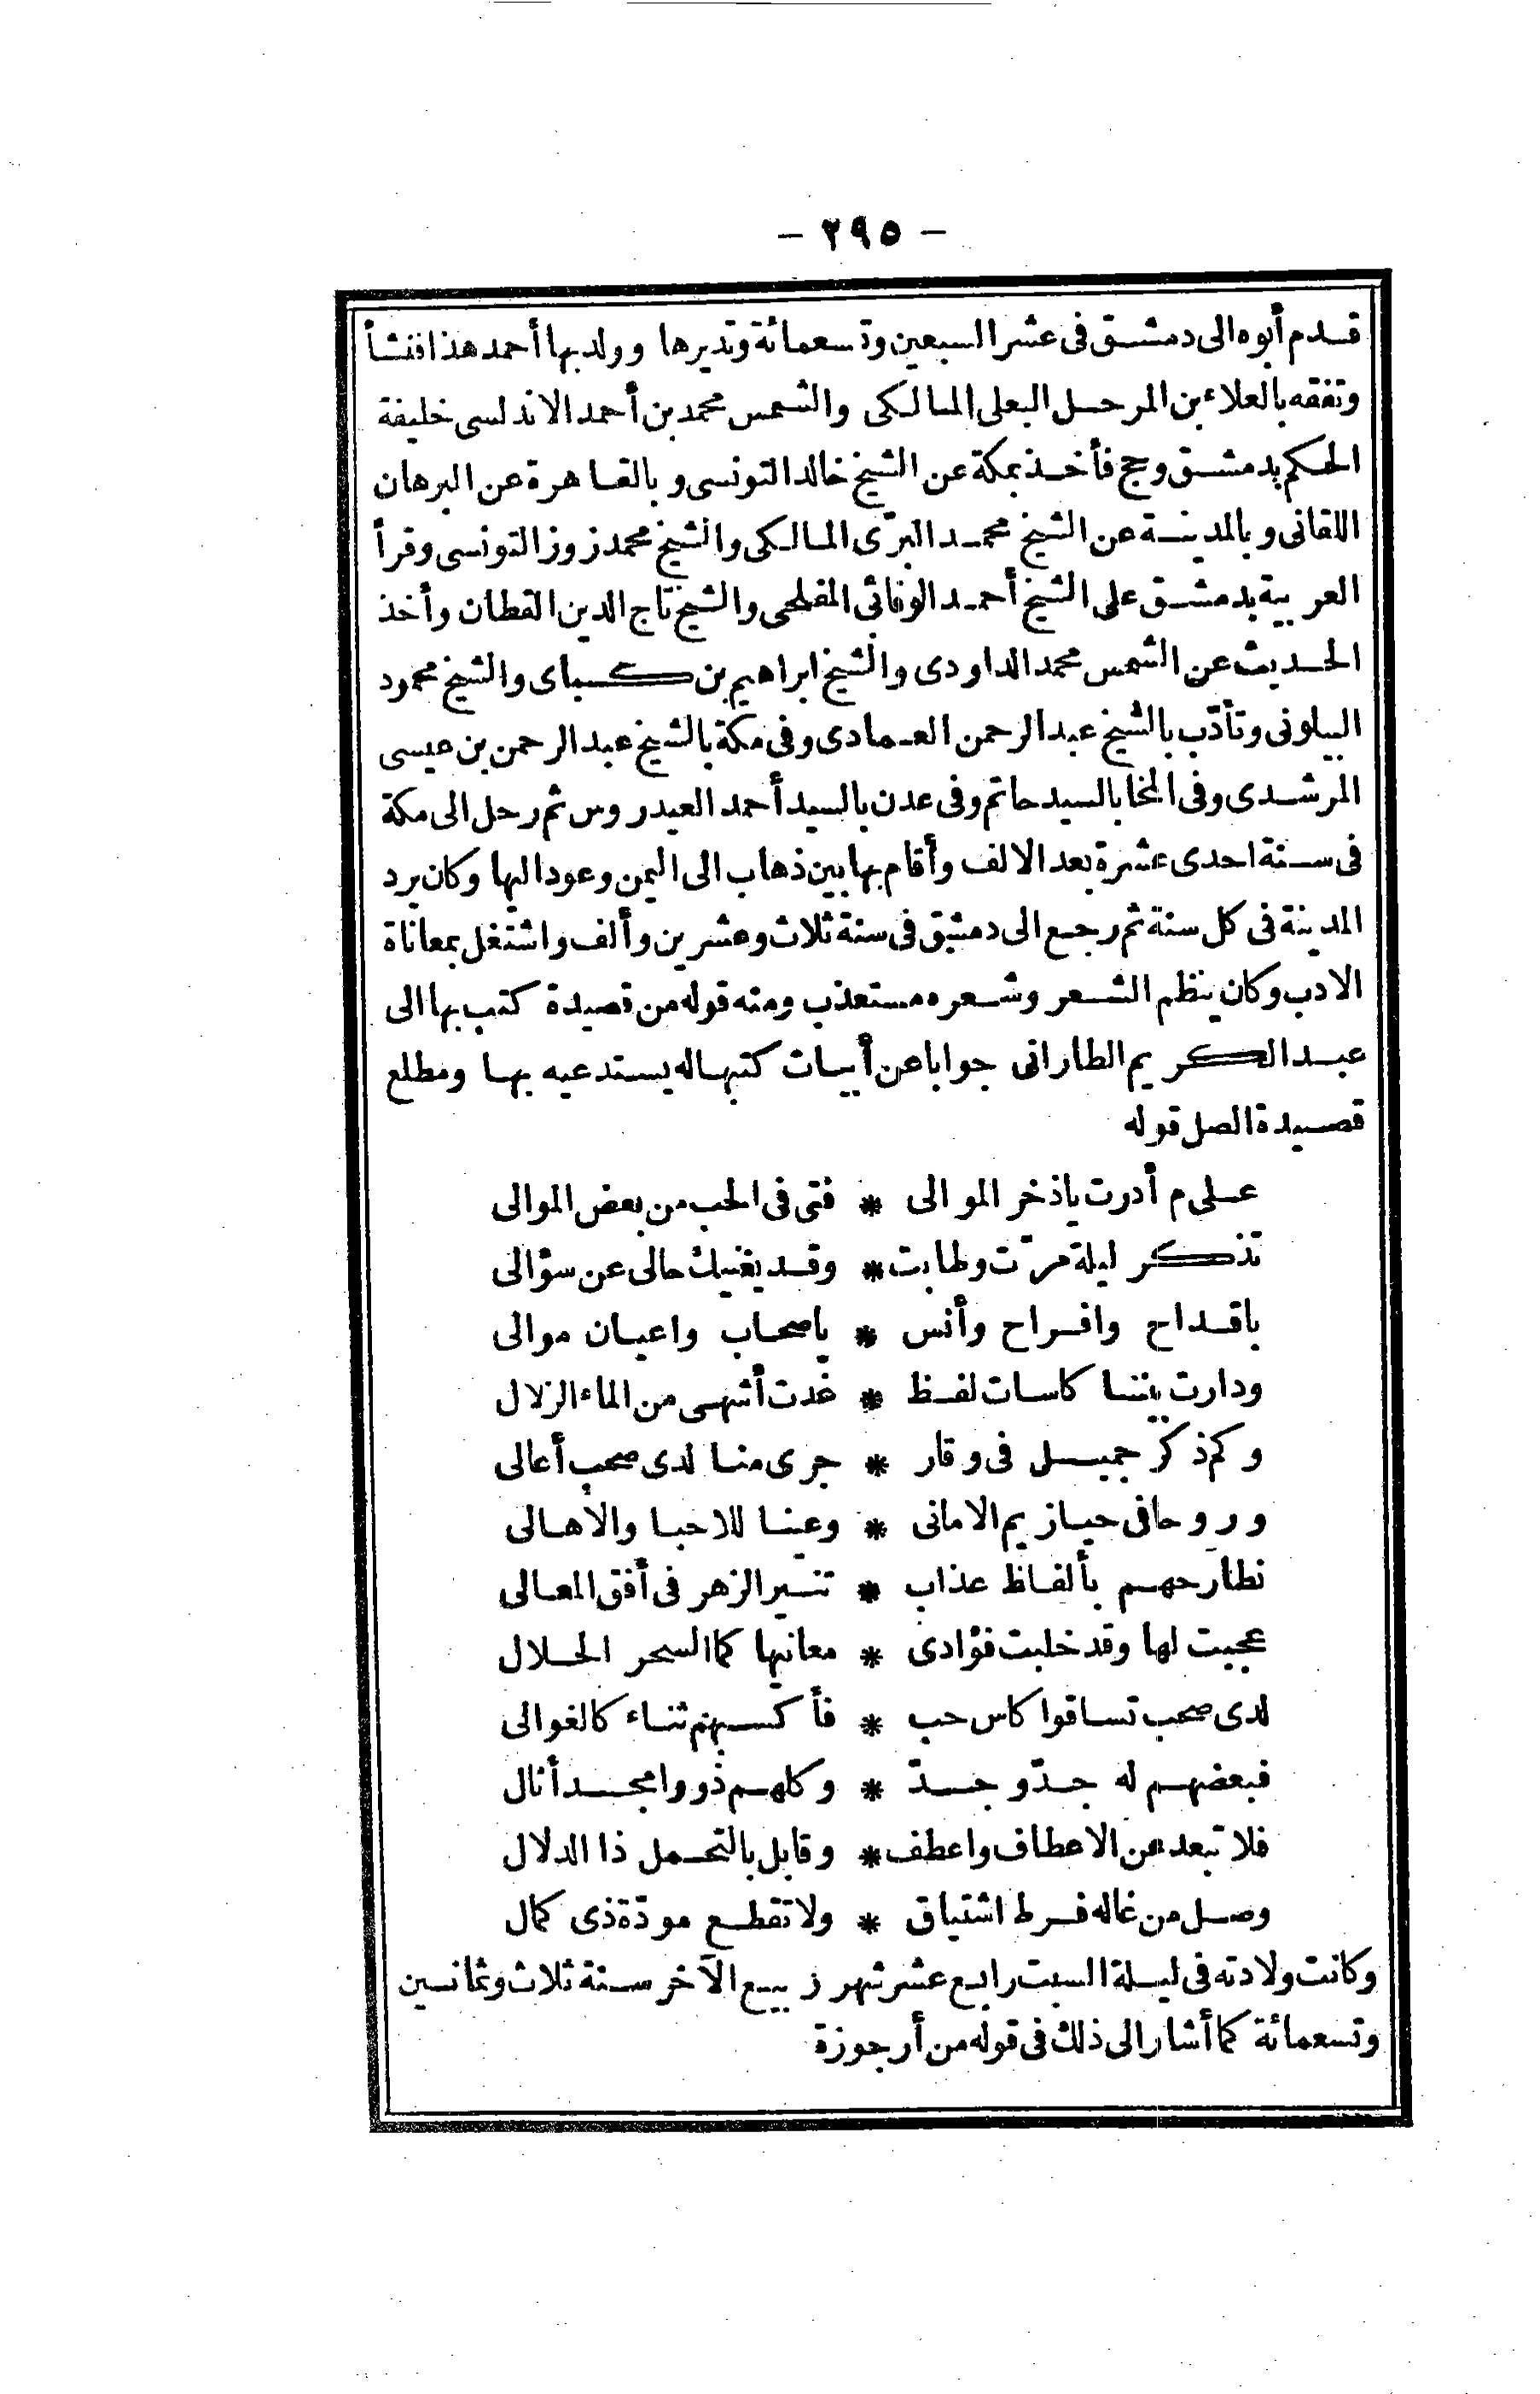 – ٢٩٥ –
قدم أبوه الى دمشق فى عشر السبعين وتسعمائة وتديرها وولد بها أحمد هذا فنشأ
وتفقه بالعلاء بن المرحل البعلى المالكى والشمس محمد بن أحمد الاندلسى خليفة
الحكم بدمشق وحج فأخذ بمكة عن الشيخ خالد التونسى وبالقاهرة عن البرهان
اللقانى وبالمدينة عن الشيخ محمد البرّى المالكى والشيخ محمد زروز التونسى وقرأ
العربية بدمشق على الشيخ أحمد الوفائى المفلحى والشيخ تاج الدين القطان وأخذ
الحديث عن الشمس محمد الداودى والشيخ ابراهيم بن كسباى والشيخ محمود
البيلونى وتأدّب بالشيخ عبد الرحمن العمادى وفى مكة بالشيخ عبد الرحمن بن عيسى
المرشدى وفى المخا بالسيد حاتم وفى عدن بالسيد أحمد العيدروس ثم رحل الى مكة
فى سنة احدى عشرة بعد الالف وأقام بها بين ذهاب الى اليمن وعود اليها وكان يرد
المدينة فى كل سنة ثم رجع الى دمشق فى سنة ثلاث وعشرين وألف واشتغل بمعاناة
الادب وكان ينظم الشعر وشعره مستعذب ومنه قوله من قصيدة كتب بها الى
عبد الكريم الطارانى جوابا عن أبيات كتبها له يستدعيه بها ومطلع
قصيدة الصل قوله
على م أدرت ياذخر الموالى * فتى فى الحب من بعض الموالى
تذكر ليلة مرّت وطابت * وقد يغنيك حالى عن سؤالى
باقداح وافراح وأنس * باصحاب واعيان موالى
ودارت بيننا كاسات لفظ * غدت أشهى من الماء الزلال
وكم ذكر جميل فى وقار * جرى منا لدى صحب أعالى
وروحا فى حيازيم الامانى * وعينا للاحبا والاهالى
نطارحهم بألفاظ عذاب * تنسير الزهر فى أفق المعالى
عجبت لها وقد خلبت فؤادى * معانيها كما السحر الحلال
لدى صحب تساقوا كاس حب * فأكسبهم ثناء كالغوالى
فبعضهم له جدّ وجدّ * وكلهم ذووا مجد أنال
فلا تبعد عن الاعطاف واعطف * وقابل بالتحمل ذا الدلال
وصل من غاله فرط اشتياق * ولا تقطع مودّة ذى كمال
وكانت ولادته فى ليلة السبت رابع عشر شهر ربيع الآخر سنة ثلاث وثمانين
وتسعمائة كما أشار الى ذلك فى قوله من أرجوزة